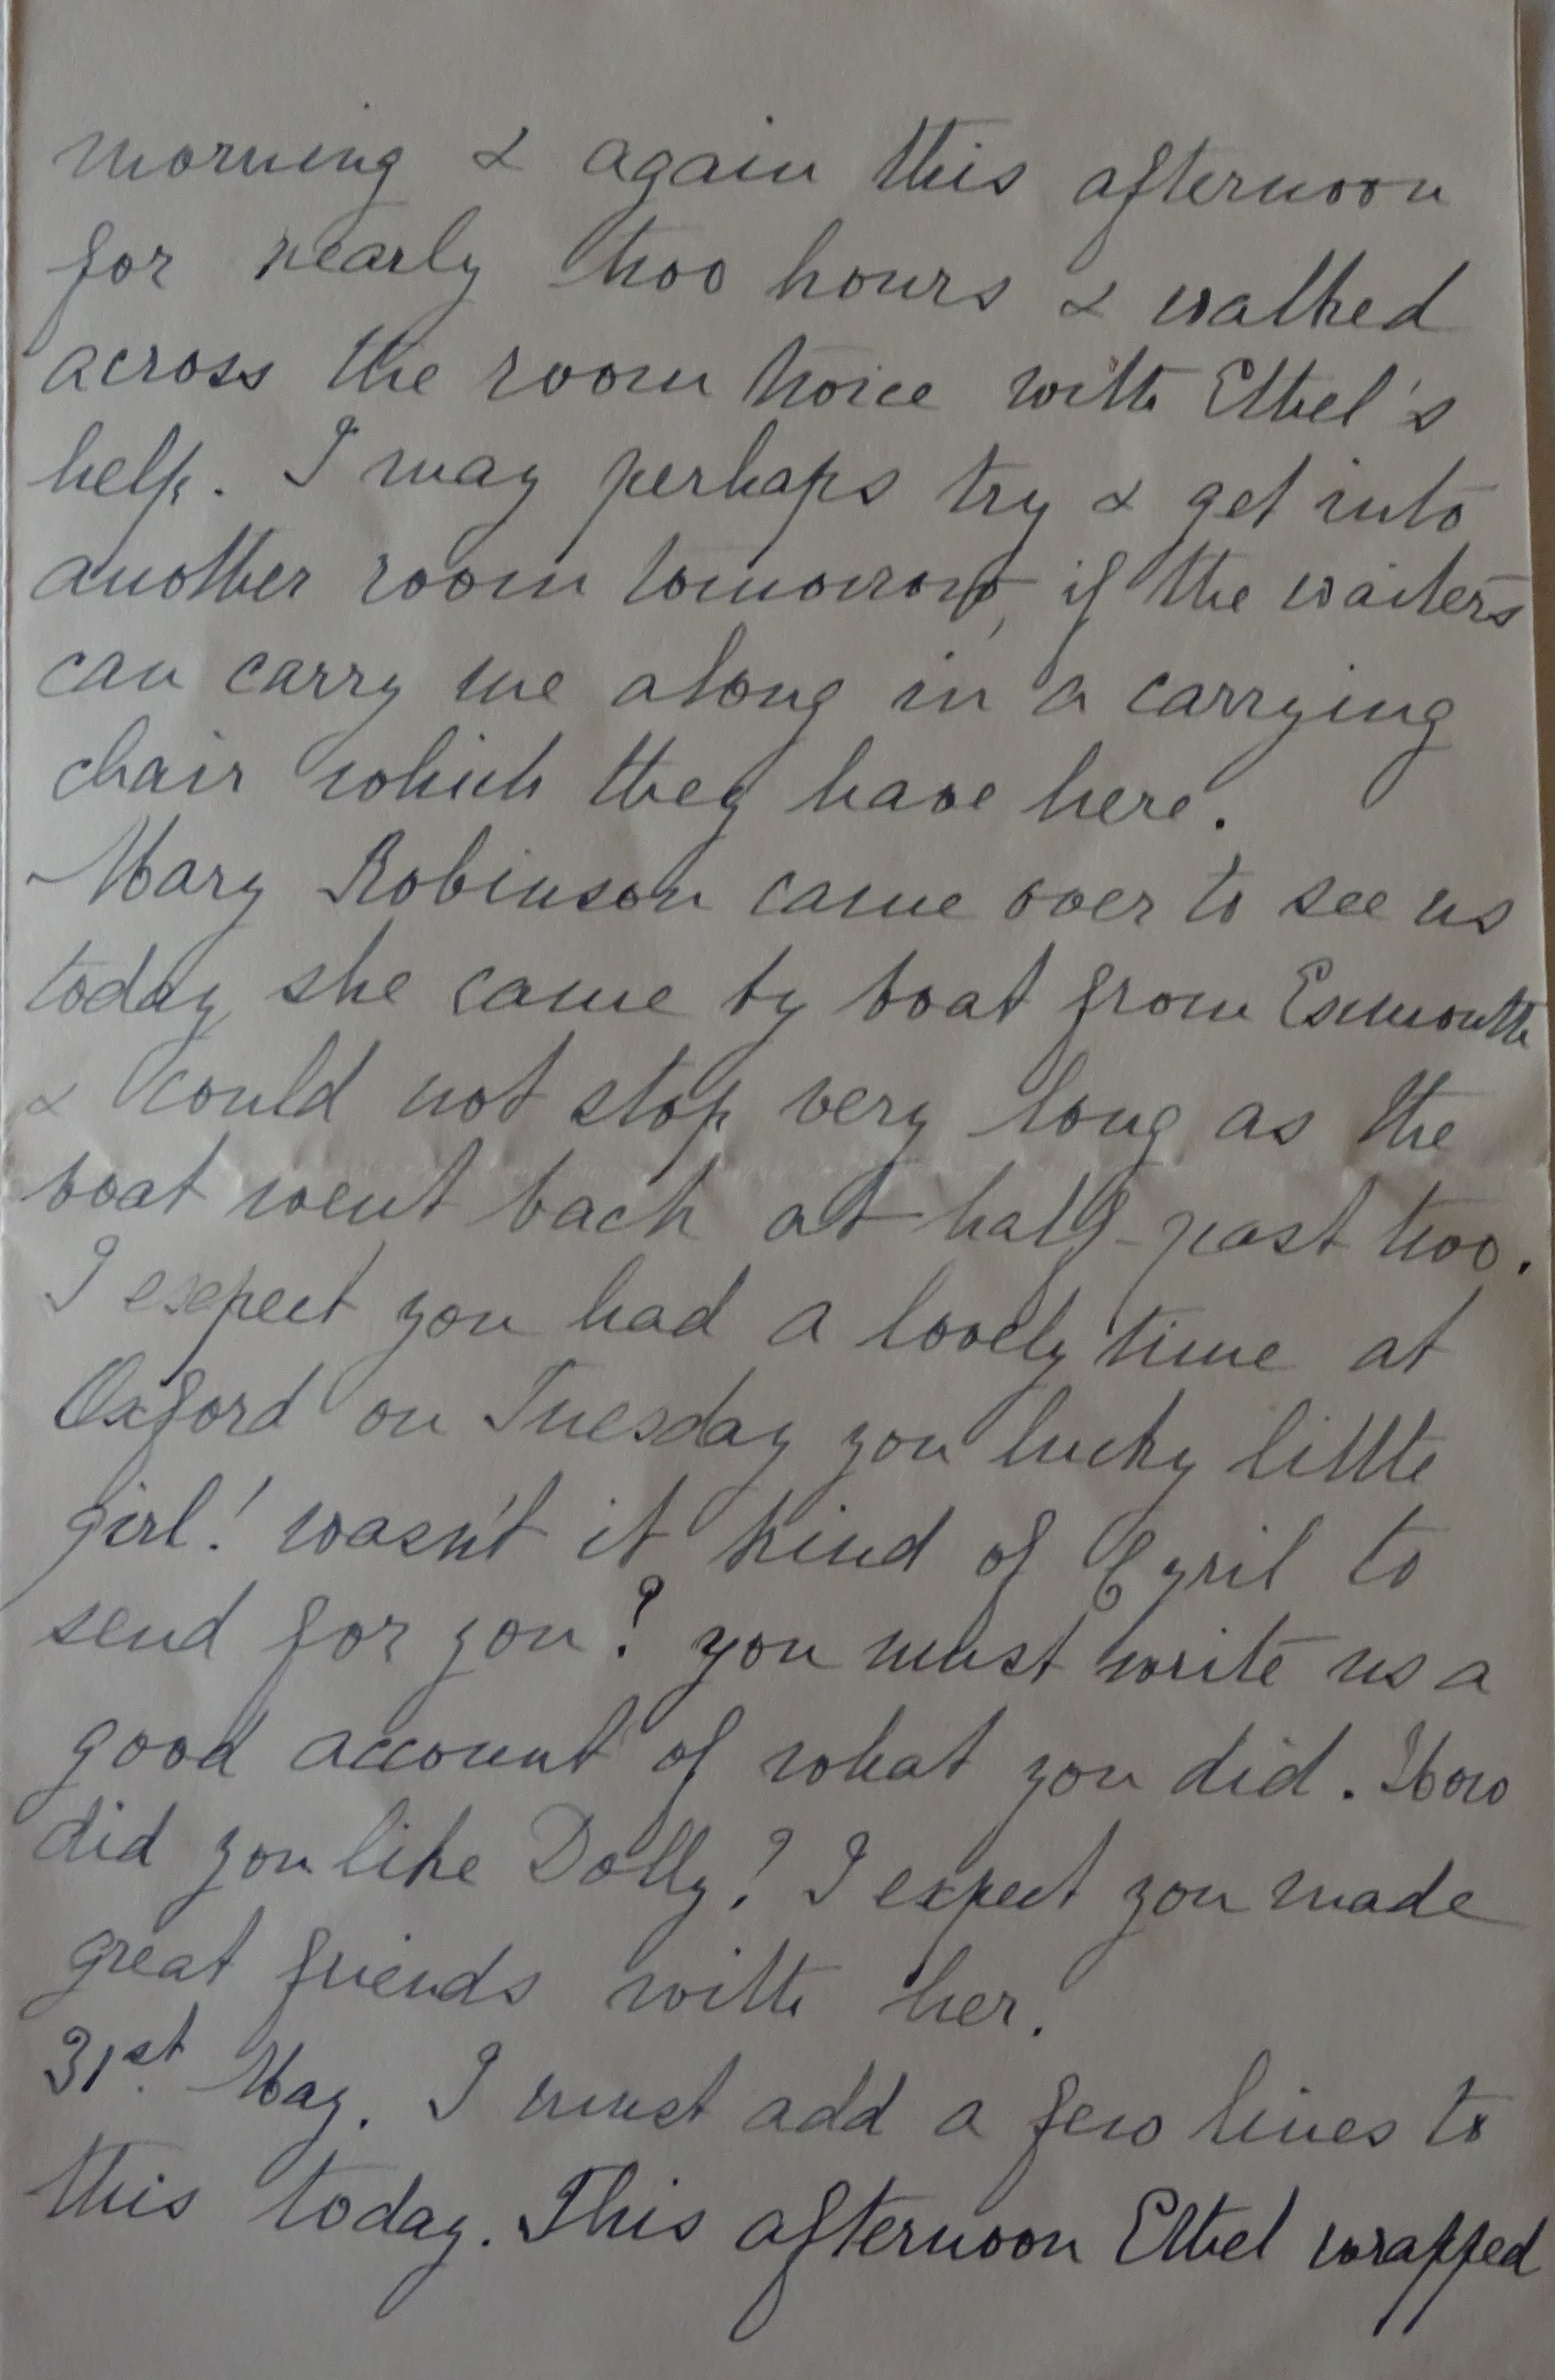 morning & again this afternoon
for nearly two hours & walked
across the room twice with Ethel's
help. I may perhaps try & get into
another room tomorrow, if the waiters
can carry me along in a carrying
chair which they have here.
Mary Robinson came over to see us
today, she came by boat from Exmouth
& could not stop very long as the
boat went back at half-past two.
I expect you had a lovely time at
Oxford on Tuesday you lucky little
girl! wasn't it kind of Cyril to
send for you? you must write us a
good account of what you did. How
did you like Dolly? I expect you made
great friends with her.
31st. May. I must add a few lines to
this today. This afternoon Ethel wrapped